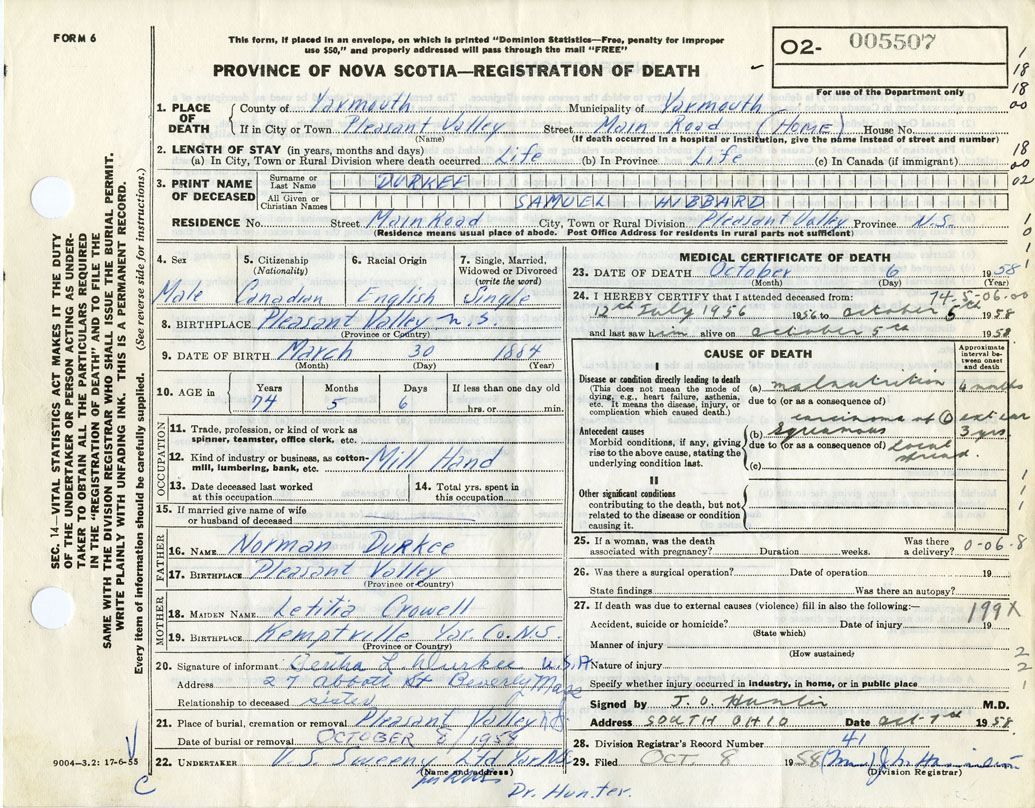 FORM 6
This form, if placed in an envelope, on which is printed "Dominion Statistics—Free, penalty for improper
use $50," and properly addressed will pass through the mail "FREE"
PROVINCE OF NOVA SCOTIA—REGISTRATION OF DEATH
02- 005507
For use of the Department only
1. PLACE OF DEATH County of Yarmouth Municipality of Yarmouth
If in City or Town Pleasant Valley Street Main Road (HOME) House No.
(Name) (If death occurred in hospital or institution, give the name instead of street and number)
2. LENGTH OF STAY (in years, months and days)
(a) In City, Town or Rural Division where death occurred Life (b) In Province Life (c) In Canada (if immigrant)
3. PRINT NAME OF DECEASED
Surname or Last Name DURKEE
All Given or Christian Names SAMUEL HIBBARD
RESIDENCE No. Street Main Road City, Town or Rural Division Pleasant Valley Province N.S.
(Residence means usual place of abode. Post Office Address for residents in rural parts not sufficient)
1
18
18
00
18
00
02
1
0
1
SEC. 14—VITAL STATISTICS ACT MAKES IT THE DUTY
OF THE UNDERTAKER OR PERSON ACTING AS UNDER-
TAKER TO OBTAIN ALL THE PARTICULARS REQUIRED
IN THE "REGISTRATION OF DEATH" AND TO FILE THE
SAME WITH THE DIVISION REGISTRAR WHO SHALL ISSUE THE BURIAL PERMIT.
WRITE PLAINLY WITH UNFADING INK. THIS IS A PERMANENT RECORD.
Every item of information should be carefully supplied. (See reverse side for instructions.)
4. Sex 5. Citizenship (Nationality) 6. Racial Origin 7. Single, Married, Widowed or Divorced (write the word)
Male Canadian English Single
8. BIRTHPLACE Pleasant Valley N.S.
(Province or Country)
9. DATE OF BIRTH March 30 1884
(Month) (Day) (Year)
10. AGE in Years Months Days If less than one day old
74 5 6 hrs. or min.
OCCUPATION
11. Trade, profession, or kind of work as
spinner, teamster, office clerk, etc.
12. Kind of industry or business, as cotton-
mill, lumbering, bank, etc. Mill Hand
13. Date deceased last worked
at this occupation
14. Total yrs. spent in
this occupation
15. If married give name of wife
or husband of deceased
FATHER
16. NAME Norman Durkee
17. BIRTHPLACE Pleasant Valley
(Province or Country)
MOTHER
18. MAIDEN NAME Letitia Crowell
19. BIRTHPLACE Kemptville Yar. Co. N.S.
(Province or Country)
20. Signature of informant Bertha L. Durkee U.S.A
Address 27 Abbott St Beverly Mass
Relationship to deceased sister
21. Place of burial, cremation or removal Pleasant Valley N.S.
Date of burial or removal OCTOBER 8/1958
22. UNDERTAKER V.S. Sweeny Ltd Yar. N.S.
(Name and address)
9004—3.2: 17-6-55
C
Dr. Hunter.
MEDICAL CERTIFICATE OF DEATH
23. DATE OF DEATH October 6 1958
(Month) (Day) (Year)
24. I HEREBY CERTIFY that I attended deceased from: 74-5-06-00
12th July 1956 1956 to October 5th 1958
and last saw him alive on October 5th 1958
CAUSE OF DEATH
Approximate interval between onset and death
I
Disease or condition directly leading to death
(This does not mean the mode of
dying, e.g., heart failure, asthenia,
etc. It means the disease, injury, or
complication which caused death.)
(a) malnutrition 4 months
due to (or as a consequence of)
carcinoma of ext ear
Antecedent causes
Morbid conditions, if any, giving
rise to the above cause, stating the
underlying condition last.
(b) squamous 3 yrs
due to (or as a consequence of) local
spread.
(c)
II
Other significant conditions
contributing to the death, but not
related to the disease or condition
causing it.
1
1
1
25. If a woman, was the death
associated with pregnancy? Duration weeks. Was there
a delivery? 0-06-8
26. Was there a surgical operation? Date of operation 19
State findings Was there an autopsy?
27. If death was due to external causes (violence) fill in also the following:—
199X
Accident, suicide or homicide? Date of injury 19
(State which)
Manner of injury 2
(How sustained)
Nature of injury 2
Specify whether injury occurred in industry, in home, or in public place 1
Signed by J. O. Hunter M.D.
Address SOUTH OHIO Date Oct. 7th 1958
28. Division Registrar's Record Number 41
29. Filed OCT 8 1958
(Division Registrar)